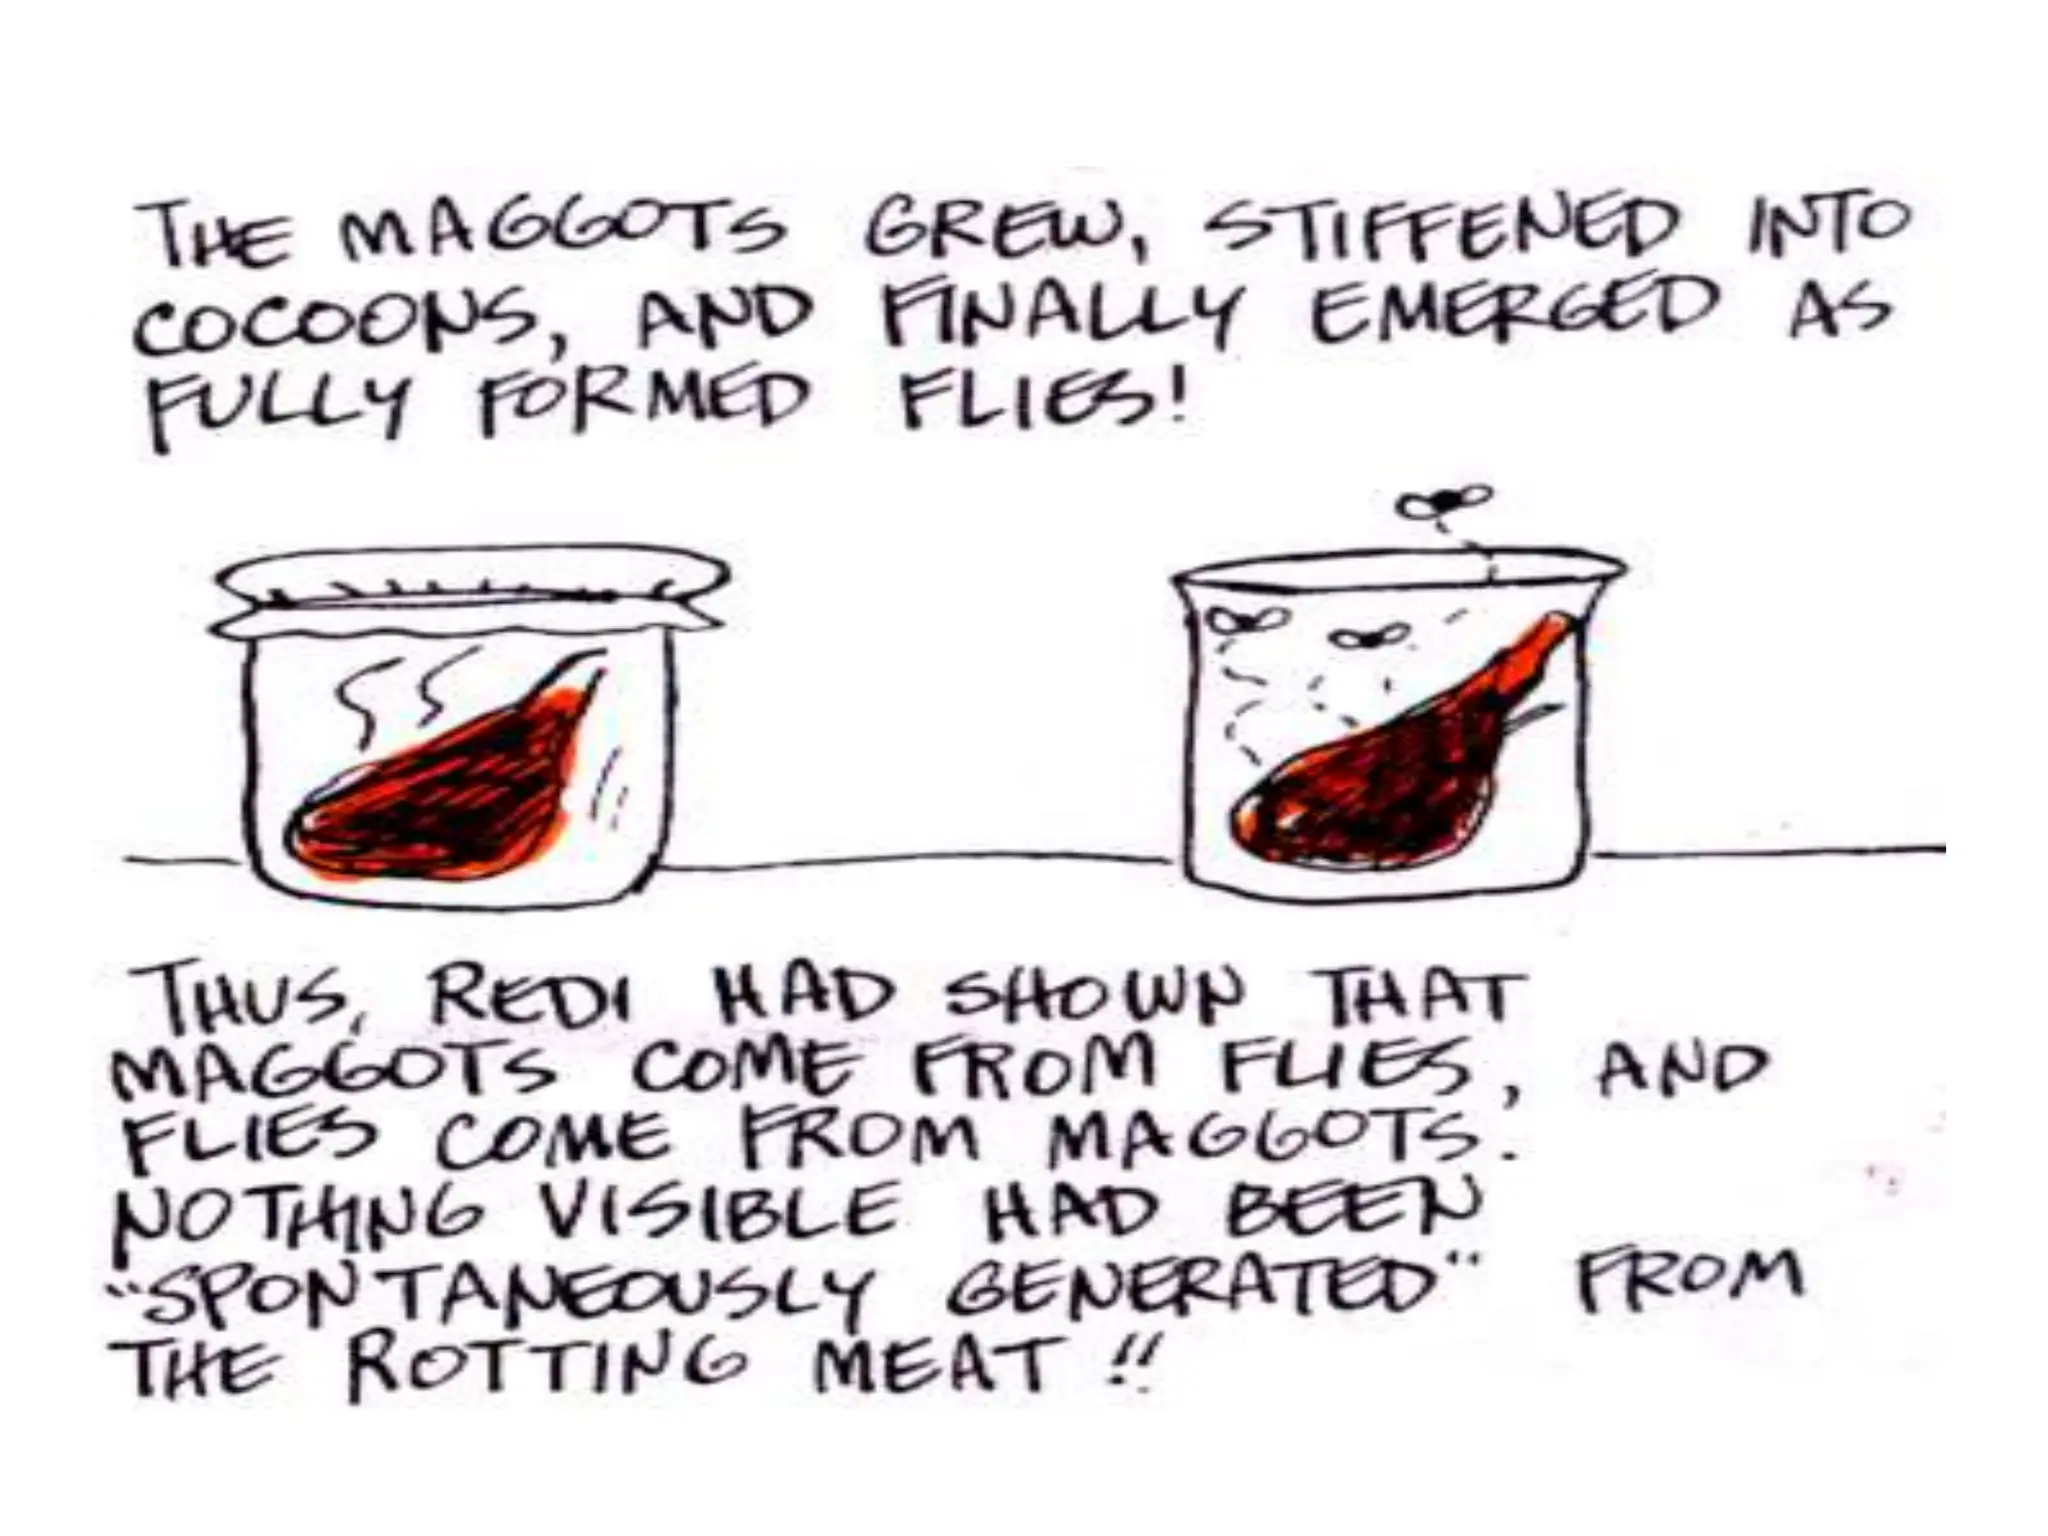 THE MAGGOTS GREW, STIFFENED INTO
COCOONS, AND FINALLY EMERGED AS
FULLY FORMED FLIES!
THUS, REDI HAD SHOWN THAT
MAGGOTS COME FROM FLIES, AND
FLIES COME FROM MAGGOTS.
NOTHING VISIBLE HAD BEEN
"SPONTANEOUSLY GENERATED" FROM
THE ROTTING MEAT!!